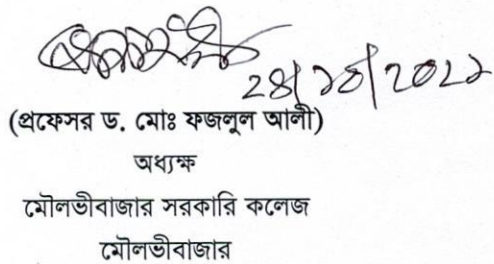 (প্রফেসর ড. মোঃ ফজলুল আলী)
অধ্যক্ষ
মৌলভীবাজার সরকারি কলেজ
মৌলভীবাজার